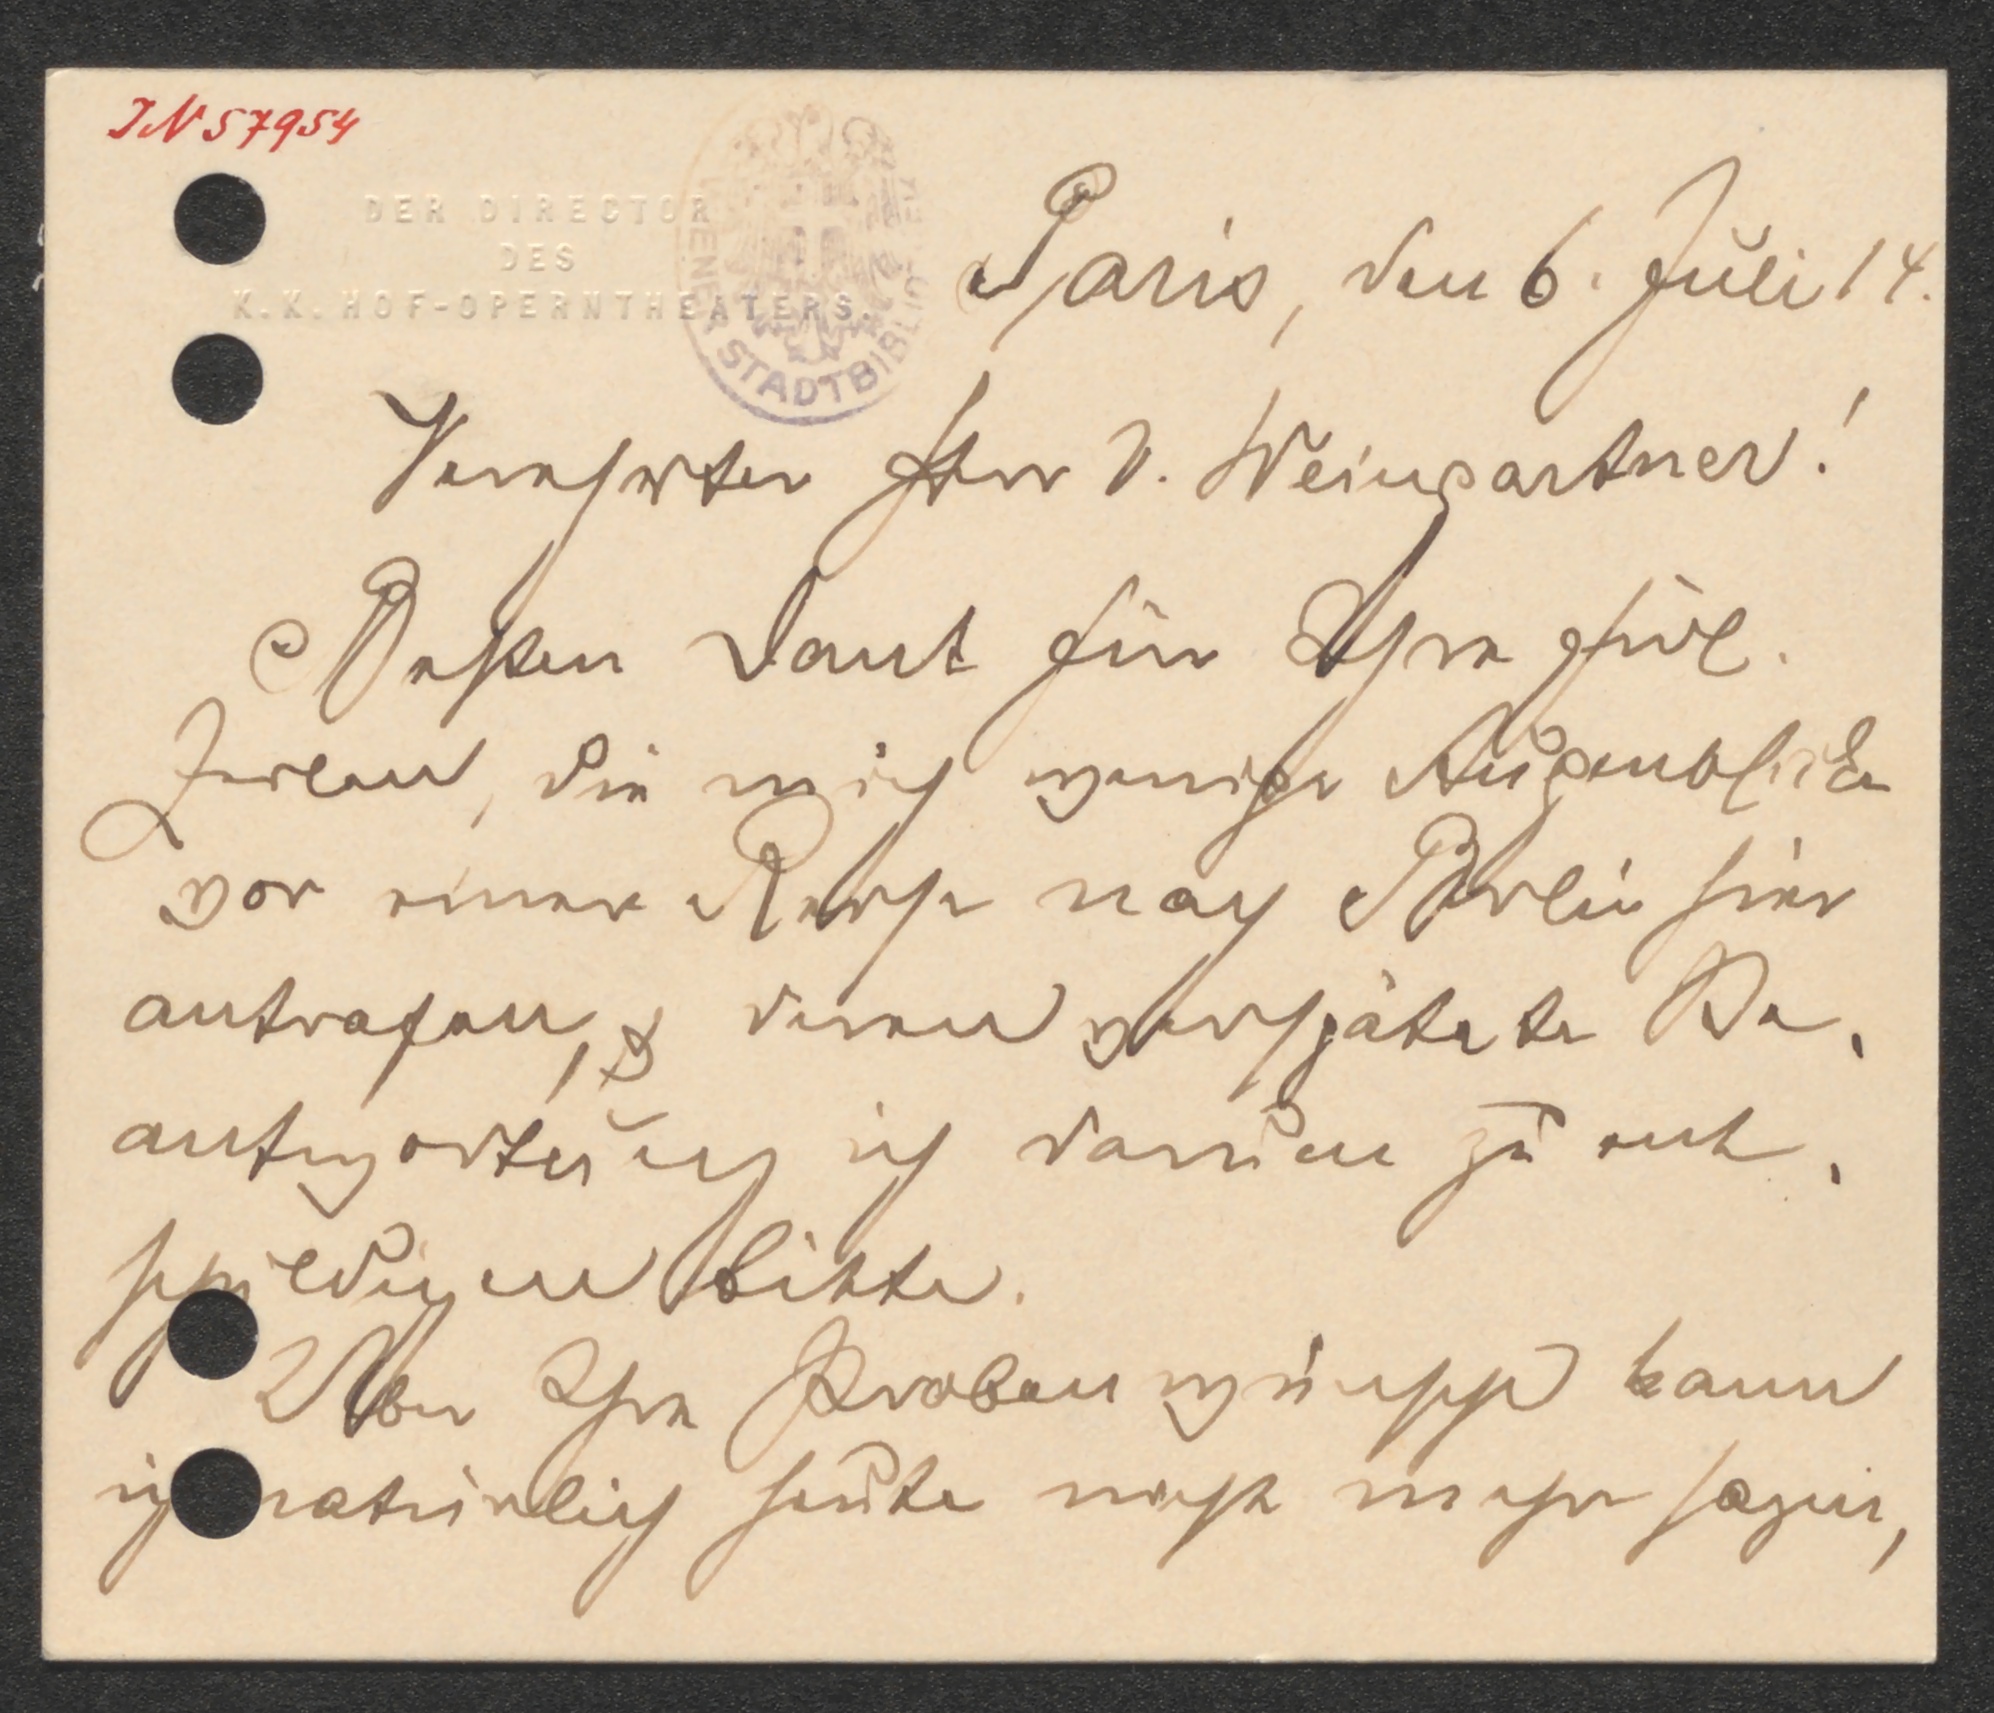 IN 57954
DER DIRECTOR
DES
K. K. HOF-OPERNTHEATERS.
WIENER STADTBIBLIOTHEK
Paris, den 6. Juli 14.
Verehrter Herr v. Weingartner!
Besten Dank für Ihre frdl.
Zeilen, die mich wenige Augenblicke
vor einer Reise nach Berlin hier
antrafen, & deren verspätete Be-
antwortung ich darum zu ent-
schuldigen bitte.
Über Ihre Probenwünsche kann
ich natürlich heute nicht mehr sagen,